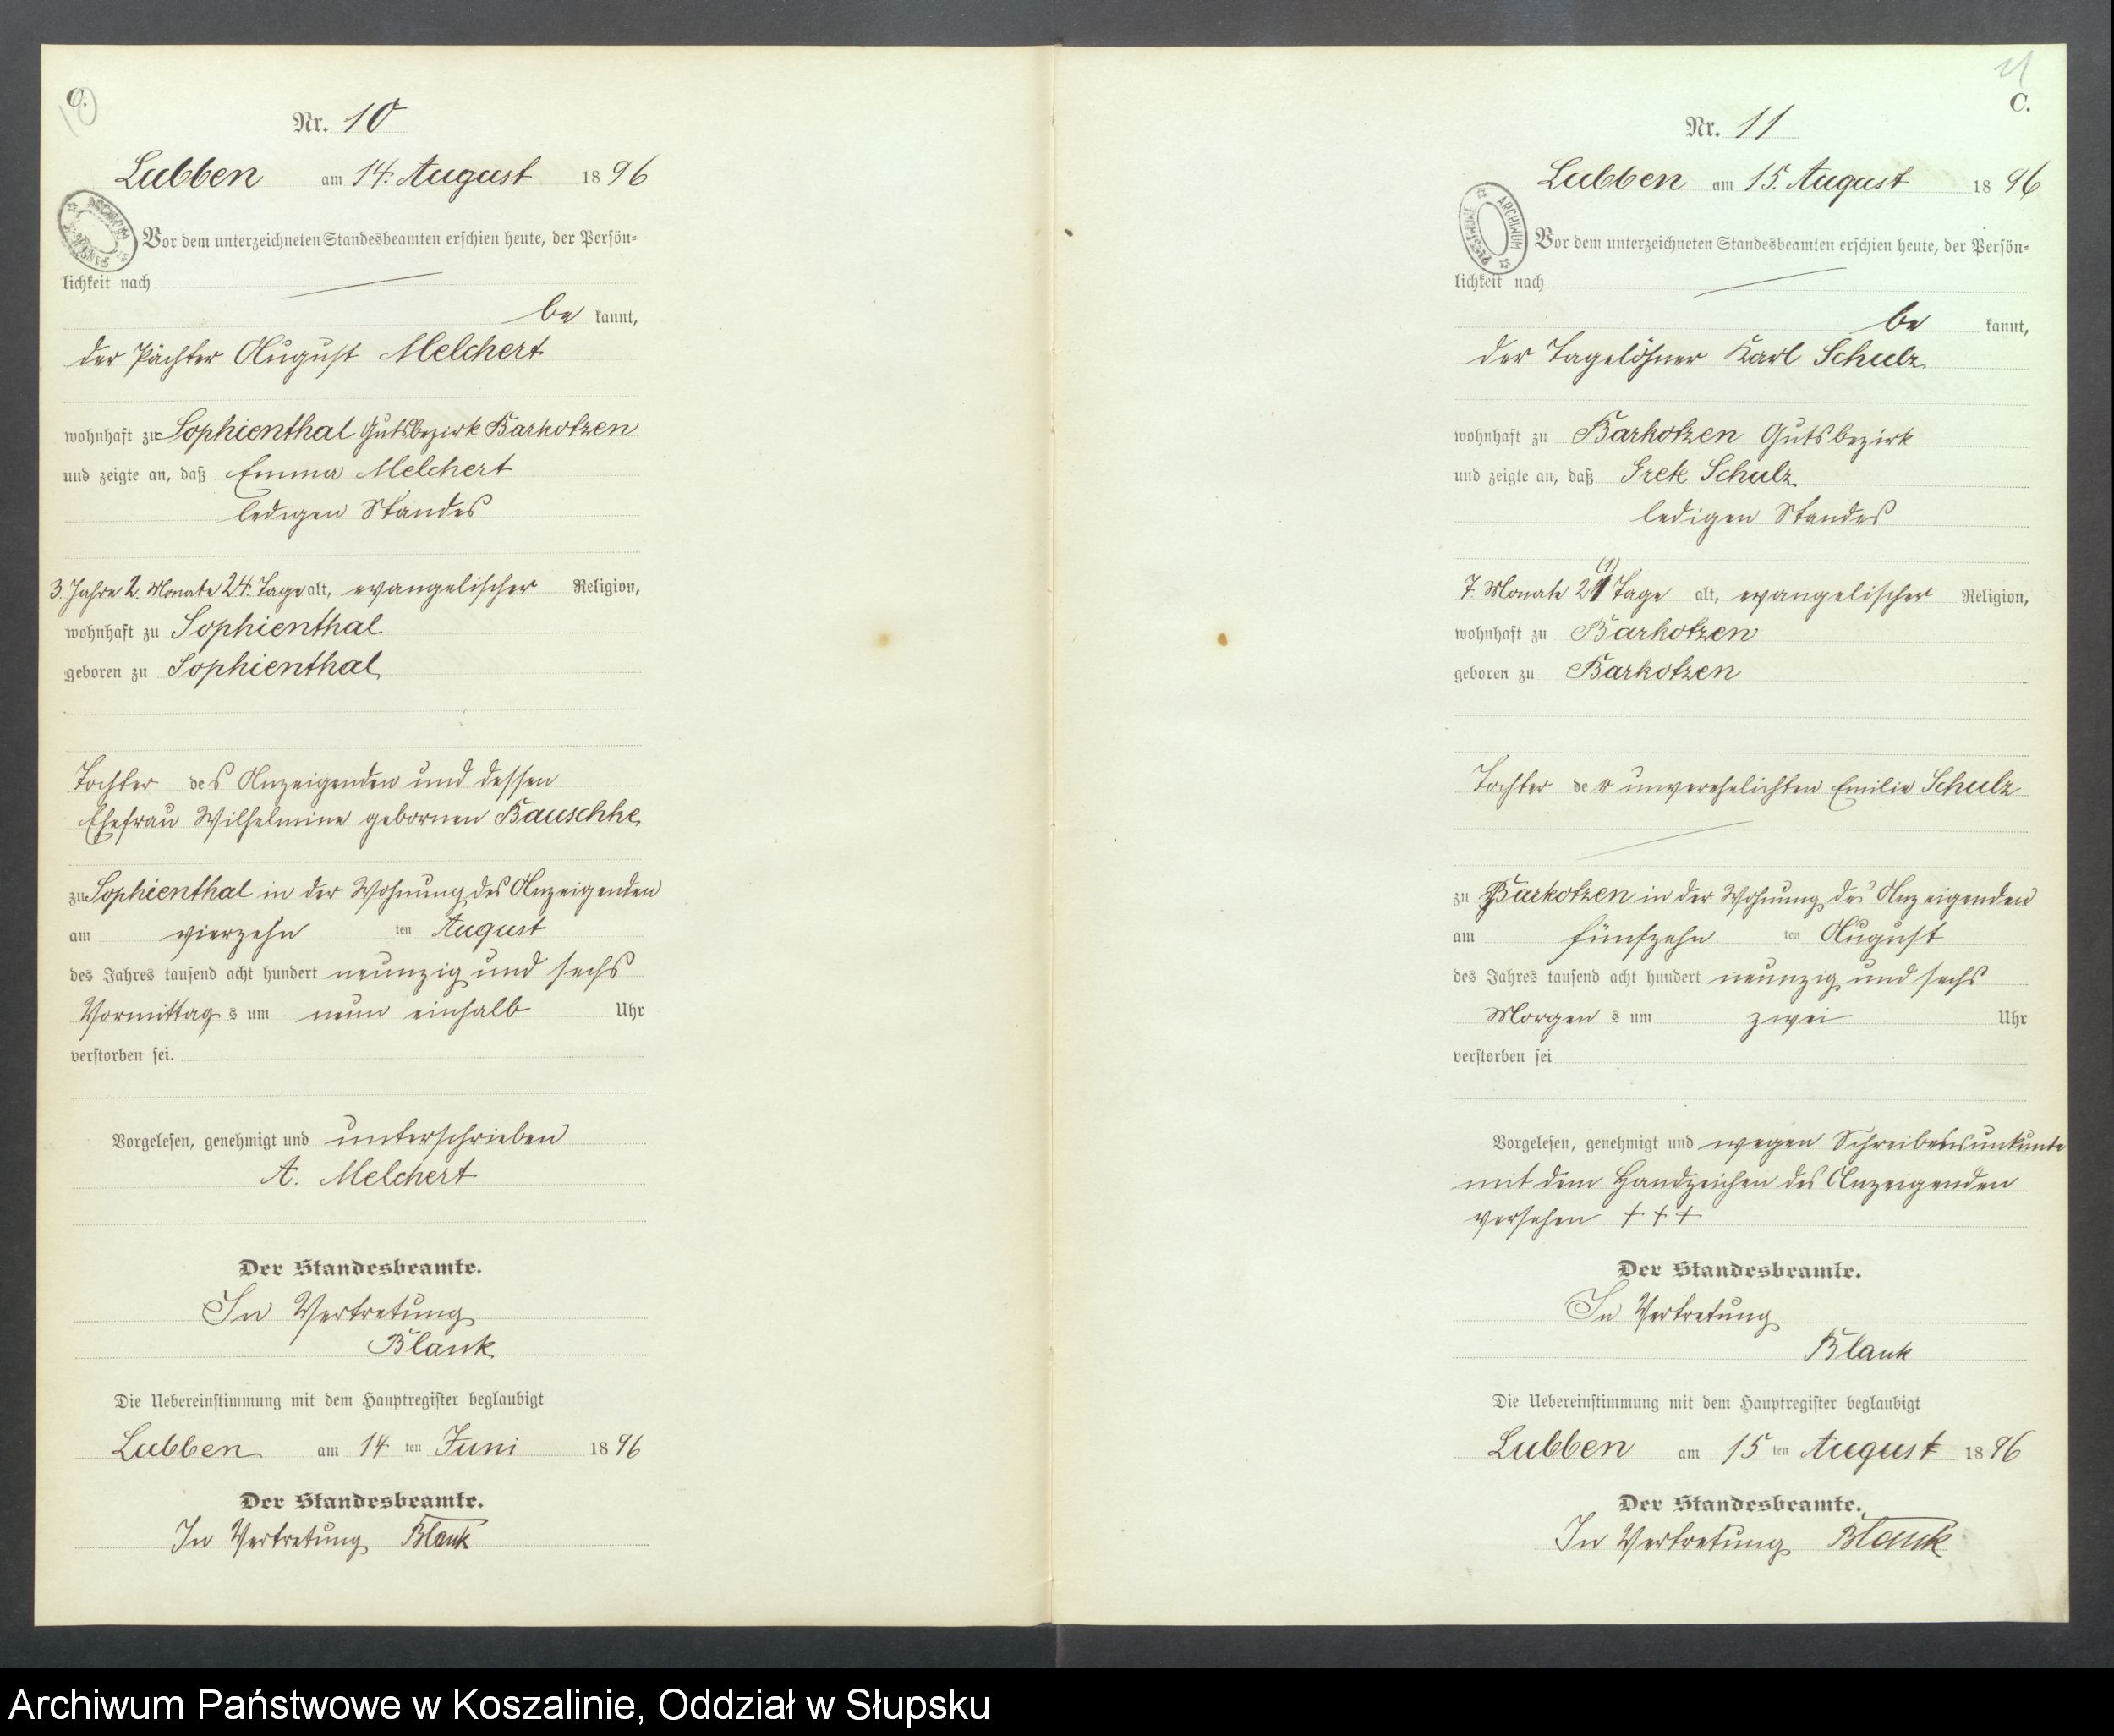 C.
10
Nr. 10
Lubben am 14. August 1896
ARCHIWUM
Vor dem unterzeichneten Standesbeamten erschien heute, der Persön-
lichkeit nach
be kannt,
der Pächter August Melchert
wohnhaft zu Sophienthal Gutsbezirk Barkotzen
und zeigte an, daß Emma Melchert
ledigen Standes
3. Jahre 2. Monate 24. Tage alt, evangelischer Religion,
wohnhaft zu Sophienthal
geboren zu Sophienthal
Tochter des Anzeigenden und dessen
Ehefrau Wilhelmine gebornen Bauschke
zu Sophienthal in der Wohnung des Anzeigenden
am vierzehn ten August
des Jahres tausend acht hundert neunzig und sechs
Vormittags um neun einhalb Uhr
verstorben sei.
Vorgelesen, genehmigt und unterschrieben
A. Melchert
Der Standesbeamte.
In Vertretung
Blank
Die Uebereinstimmung mit dem Hauptregister beglaubigt
Lubben am 14 ten Juni 1896
Der Standesbeamte.
In Vertretung Blank
11
C.
Nr. 11
Lubben am 15. August 1896
ARCHIWUM PAŃSTWOWE
Vor dem unterzeichneten Standesbeamten erschien heute, der Persön-
lichkeit nach
be kannt,
der Tagelöhner Karl Schulz
wohnhaft zu Barkotzen Gutsbezirk
und zeigte an, daß Grete Schulz
ledigen Standes
(1)
7. Monate 21 Tage alt, evangelischer Religion,
wohnhaft zu Barkotzen
geboren zu Barkotzen
Tochter der unverehelichten Emilie Schulz
zu Barkotzen in der Wohnung des Anzeigenden
am fünfzehn ten August
des Jahres tausend acht hundert neunzig und sechs
Morgens um zwei Uhr
verstorben sei
Vorgelesen, genehmigt und wegen Schreibensunkunde
mit dem Handzeichen des Anzeigenden
versehen + + +
Der Standesbeamte.
In Vertretung
Blank
Die Uebereinstimmung mit dem Hauptregister beglaubigt
Lubben am 15 ten August 1896
Der Standesbeamte.
In Vertretung Blank
Archiwum Państwowe w Koszalinie, Oddział w Słupsku